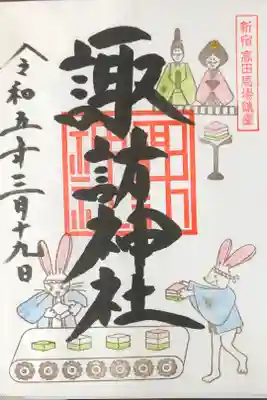 新宿 高田馬場鎮座
諏訪神社
令和五年三月十九日